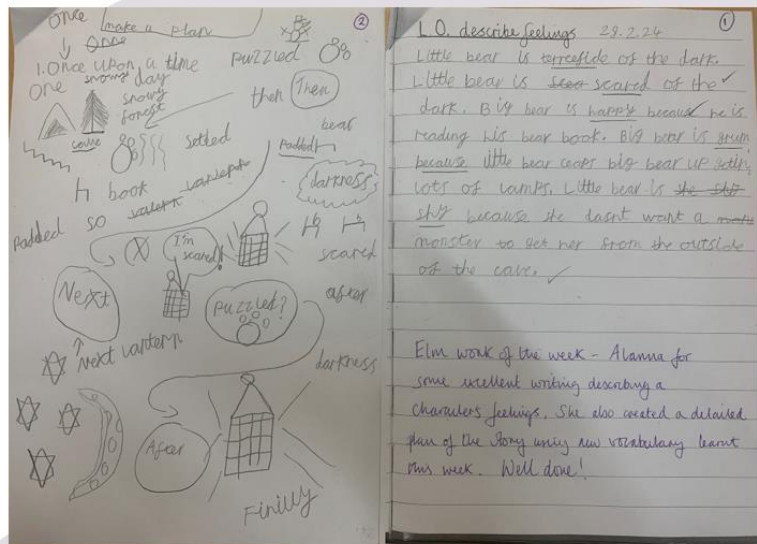 Once make a plan
②
Once
1. Once upon a time
puzzled
One snowy day
snowy
forest
then Then
cave
settled
bear
padded
book
darkness
padded so
I'm
scared!
scared
Next
puzzled?
after
Next lantern
darkness
After
Finilly
①
L.O. describe feelings 29.2.24
Little bear is of the dark.
Little bear is scared of the
dark. Big bear is happy because he is
reading his bear book. Big bear is grum
because little bear ceaps big bear up
lots of lamps. Little bear is she shy
shy because she dasnt want a
monster to get her from the outside
of the cave.
Elm work of the week - Alanna for
some excellent writing describing a
characters feelings. She also created a detailed
plan of the story using new vocabulary learnt
this week. Well done!